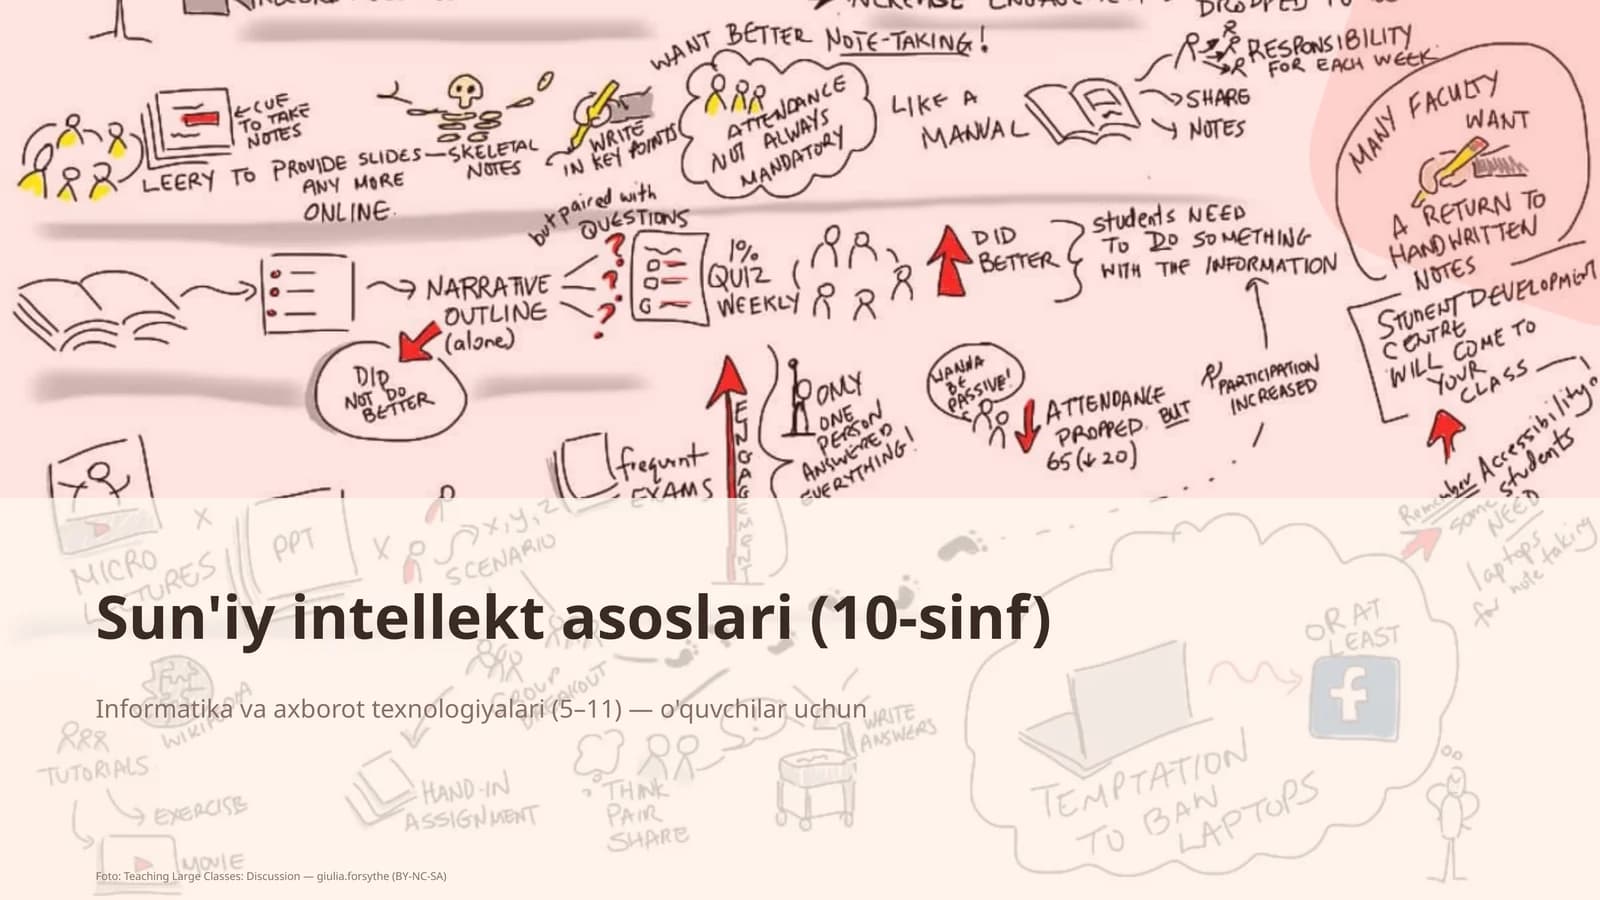 WANT BETTER NOTE-TAKING!
RESPONSIBILITY
FOR EACH WEEK
←CUE
TO TAKE
NOTES
LEERY TO PROVIDE SLIDES—SKELETAL
NOTES
ANY MORE
ONLINE.
WRITE
IN KEY POINTS
ATTENDANCE
NOT ALWAYS
MANDATORY
LIKE A
MANUAL
SHARE
NOTES
MANY FACULTY
WANT
A RETURN TO
HANDWRITTEN
NOTES
but paired with
QUESTIONS
NARRATIVE
OUTLINE
(alone)
1%
QUIZ
WEEKLY
DID
BETTER
students NEED
TO DO SOMETHING
WITH THE INFORMATION
STUDENT DEVELOPMENT
CENTRE
WILL COME TO
YOUR
CLASS
DID
NOT DO
BETTER
ENGAGEMENT
ONLY
ONE
PERSON
ANSWERED
EVERYTHING!
WANNA
BE
PASSIVE!
ATTENDANCE
DROPPED. BUT
65 (↓ 20)
PARTICIPATION
INCREASED
Remember Accessibility
some students
NEED
laptops
for note taking
frequent
EXAMS
MICRO
PPT
X
X
x, y, z
SCENARIO
Sun'iy intellekt asoslari (10-sinf)
Informatika va axborot texnologiyalari (5–11) — o'quvchilar uchun
WIKIPEDIA
GROUP
BREAKOUT
OR AT
LEAST
f
WRITE
ANSWERS
TUTORIALS
EXERCISE
MOVIE
HAND-IN
ASSIGNMENT
THINK
PAIR
SHARE
TEMPTATION
TO BAN
LAPTOPS
Foto: Teaching Large Classes: Discussion — giulia.forsythe (BY-NC-SA)